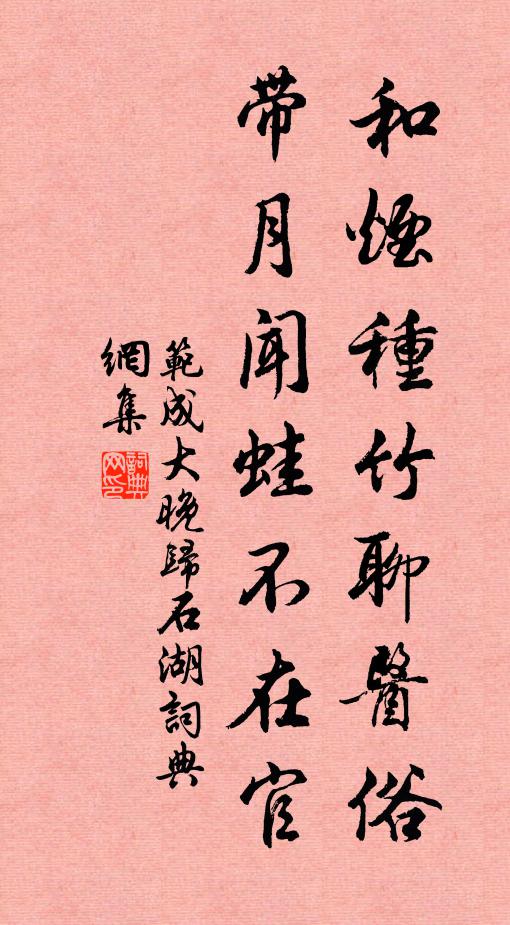 和煙種竹聊醫俗
带月闻蛙不在官
範成大晚歸石湖詞典
網集
詞典網印